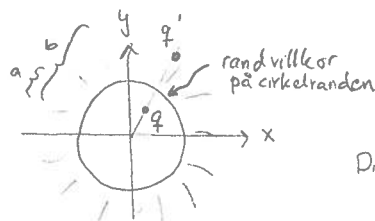 y
b
a
q'
randvillkor
på cirkelranden
q
x
D